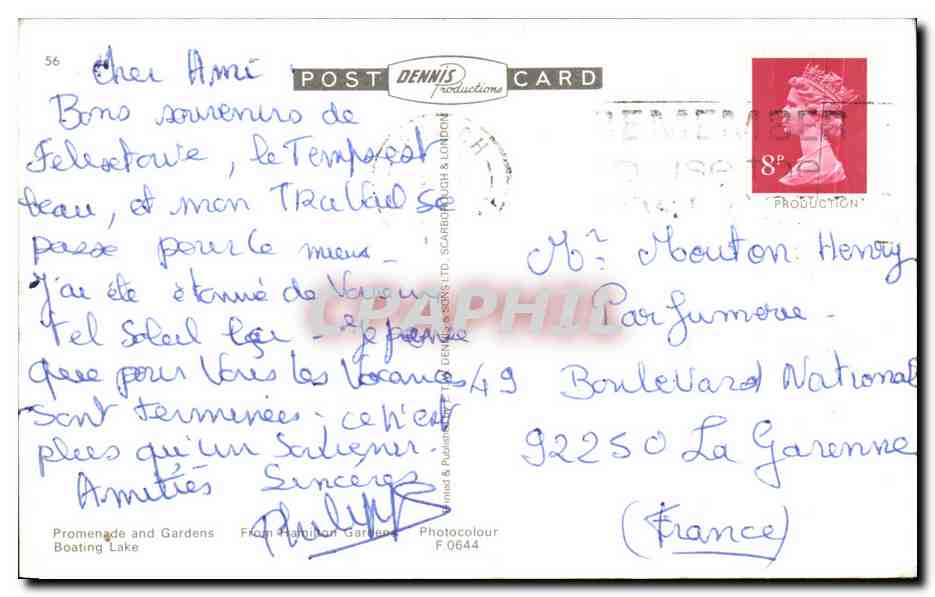 56
POST DENNIS Productions CARD
Cher Ami
Bons souvenirs de
Felixtowe, le Temps est
beau, et mon TRaVail se
passe pour le mieux -
J'ai été étonné de
tel Soleil - Je pense
que pour Vous les Vacances
sont terminées - ce n'est
plus qu'un Souvenir.
Amitiés Sincères
Philippe
Promenade and Gardens
Boating Lake
From Hamilton Gardens
Photocolour
F.0644
Printed & Published by E.T.W. DENNIS & SONS LTD., SCARBOROUGH & LONDON
REMEMBER
8P
PRODUCTION
Mr. Mouton Henry
Parfumerie -
49 Boulevard National
92250 La Garenne
(France)
CRAPHIL